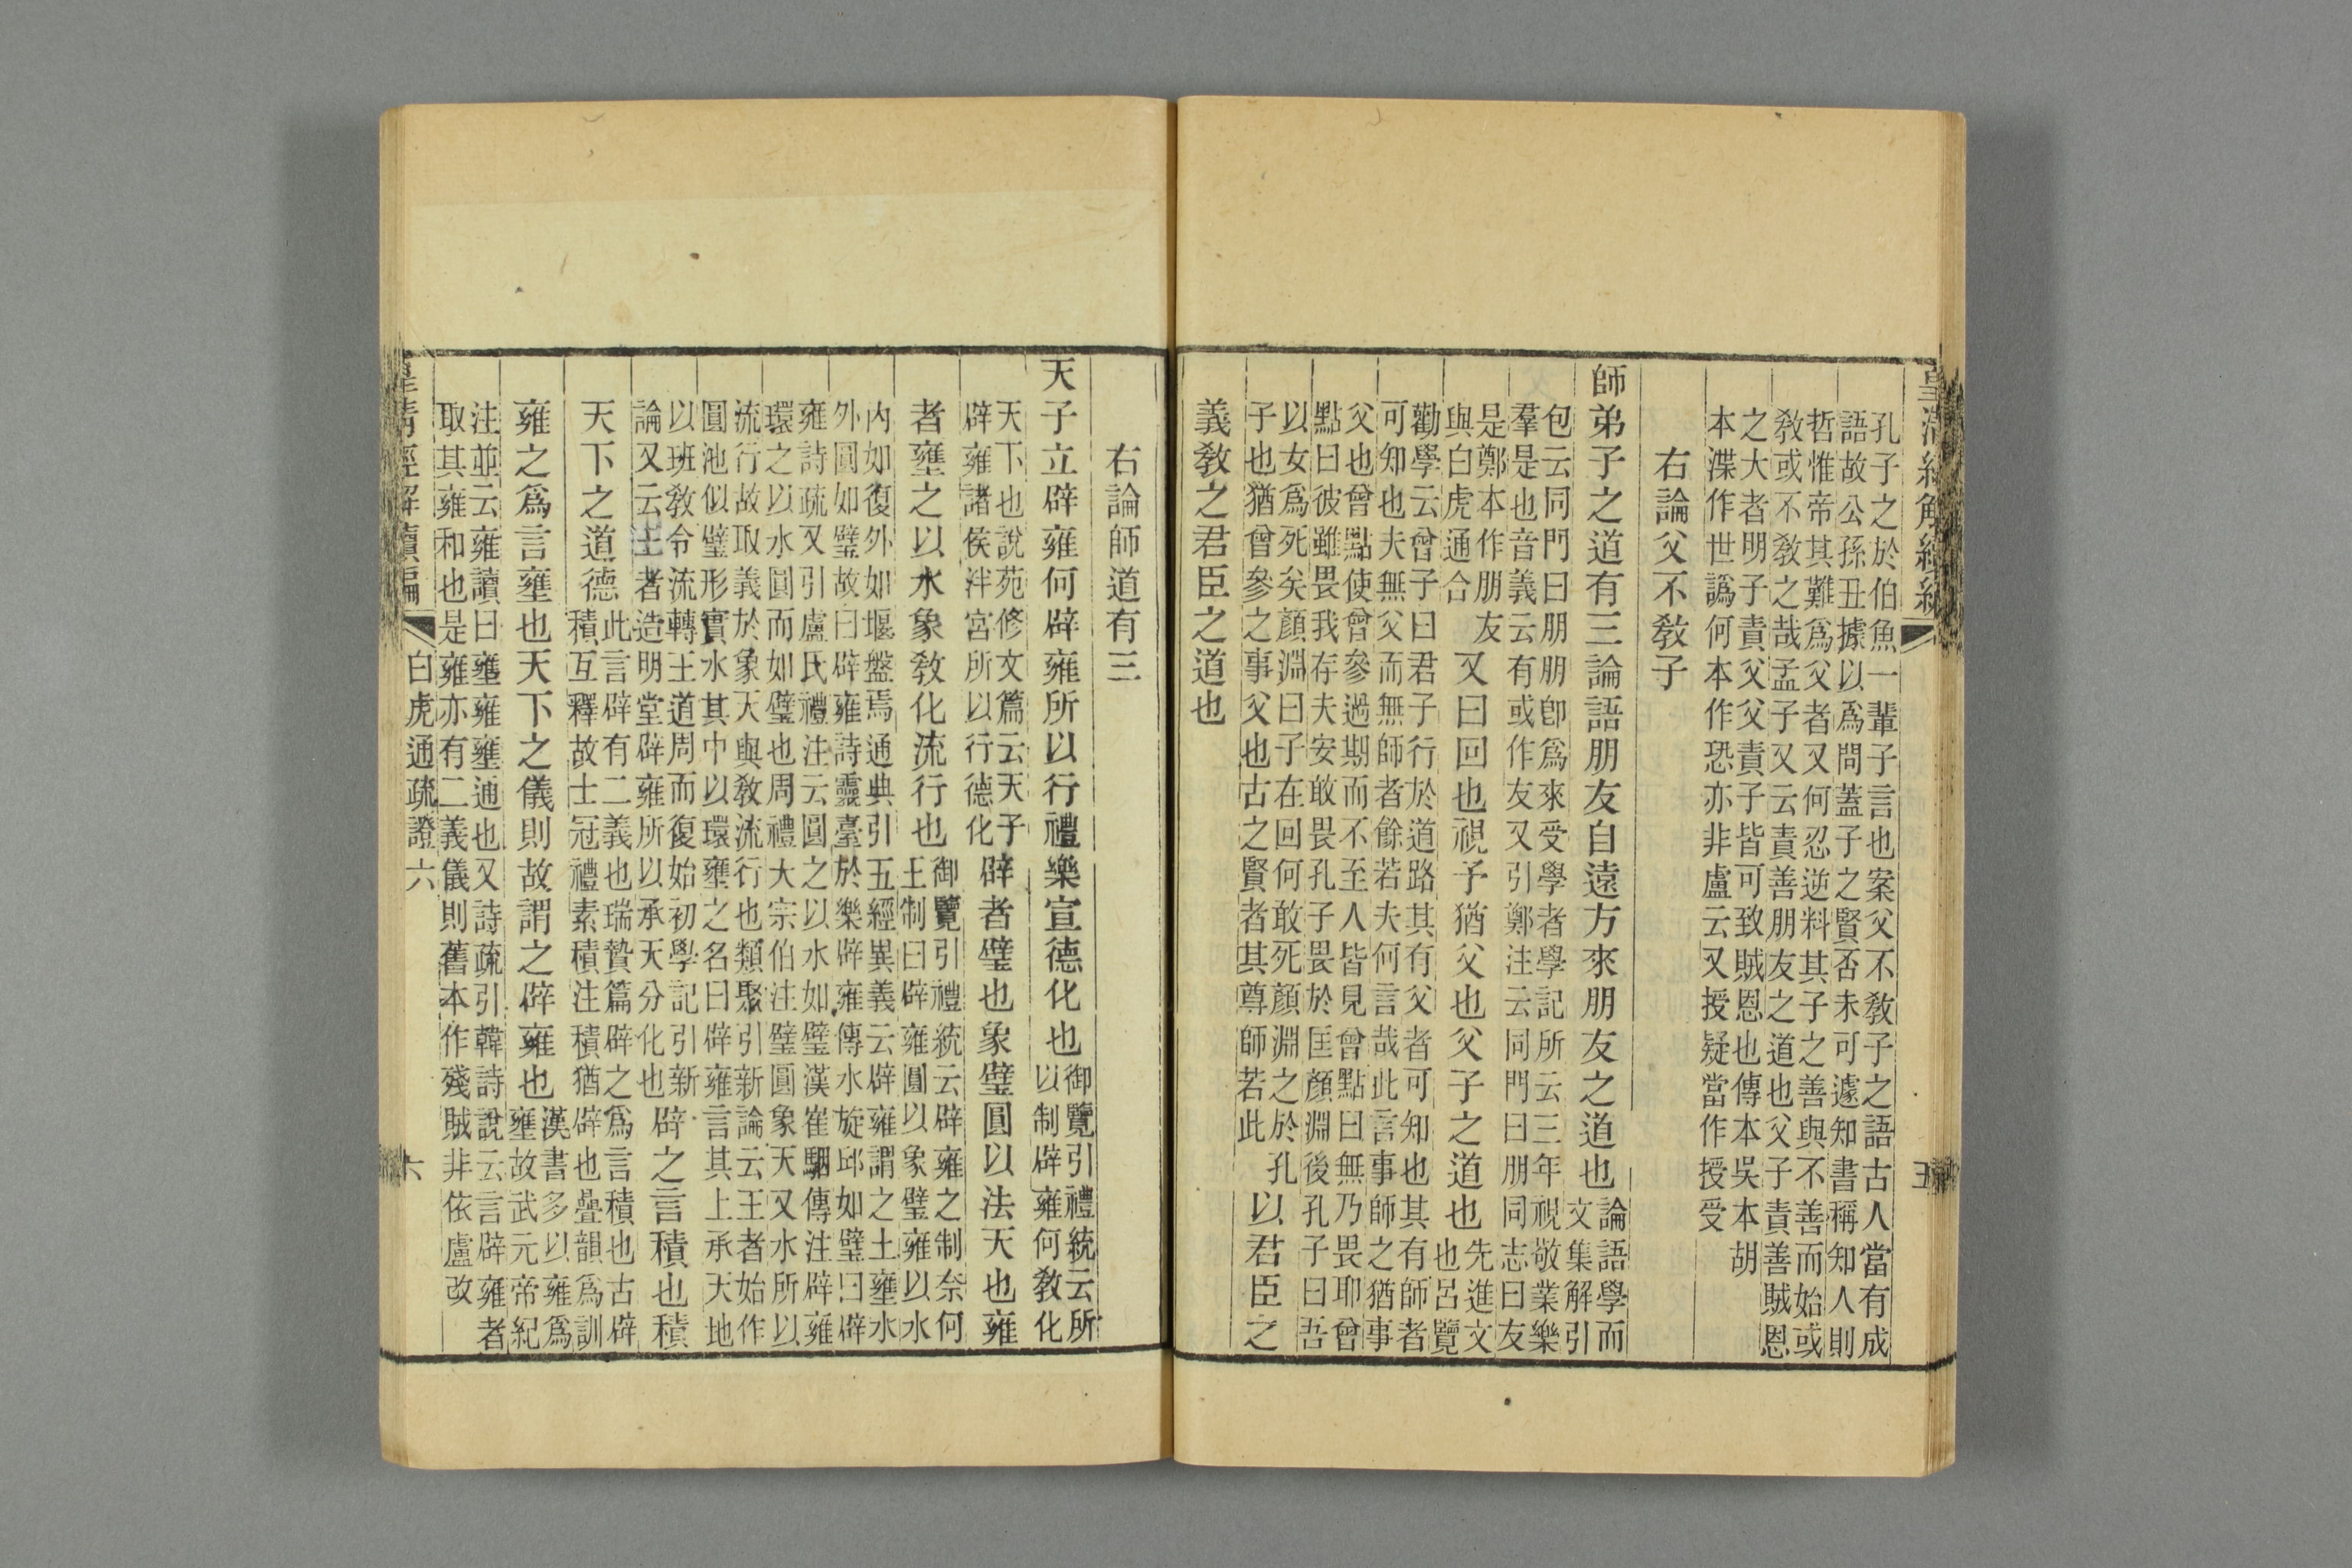 皇清經解續編
孔子之於伯魚一輩子言也案父不敎子之語古人當有成
語故公孫丑據以爲問蓋子之賢否未可遽知書稱知人則
哲惟帝其難爲父者又何忍逆料其子之善與不善而始或
敎或不敎之哉孟子又云責善朋友之道也父子責善賊恩
之大者明子責父父責子皆可致賊恩也傳本吳本胡
本渫作世譌何本作恐亦非盧云又授疑當作授受
右論父不敎子
師弟子之道有三論語朋友自遠方來朋友之道也
論語學而
文集解引
包云同門曰朋朋卽爲來受學者學記所云三年視敬業樂
羣是也音義云有或作友又引鄭注云同門曰朋同志曰友
是鄭本作朋友
與白虎通合
又曰回也視予猶父也父子之道也
先進文
也呂覽
勸學云曾子曰君子行於道路其有父者可知也其有師者
可知也夫無父而無師者餘若夫何言哉此言事師之猶事
父也曾點使曾參過期而不至人皆見曾點曰無乃畏耶曾
點曰彼雖畏我存夫安敢畏孔子畏於匡顏淵後孔子曰吾
以女爲死矣顏淵曰子在回何敢死顏淵之於孔
子也猶曾參之事父也古之賢者其尊師若此
以君臣之
義敎之君臣之道也
右論師道有三
天子立辟雍何辟雍所以行禮樂宣德化也
御覽引禮統云所
以制辟雍何敎化
天下也說苑修文篇云天子
辟雍諸侯泮宮所以行德化
辟者璧也象璧圓以法天也雍
者壅之以水象敎化流行也
御覽引禮統云辟雍之制奈何
王制曰辟雍圓以象璧雍以水
內如復外如堰盤焉通典引五經異義云辟雍謂之土壅水
外圓如璧故曰辟雍詩靈臺於樂辟雍傳水旋邱如璧曰辟
雍詩疏又引盧氏禮注云圓之以水如璧漢崔駰傳注辟雍
環之以水圓而如璧也周禮大宗伯注璧圓象天又水所以
流行故取義於象天與敎流行也類聚引新論云王者始作
圓池似璧形實水其中以環壅之名曰辟雍言其上承天地
以班敎令流轉王道周而復始初學記引新
論又云王者造明堂辟雍所以承天分化也
辟之言積也積
天下之道德
此言辟有二義也瑞贄篇辟之爲言積也古辟
積互釋故士冠禮素積注積猶辟也疊韻爲訓
雍之爲言壅也天下之儀則故謂之辟雍也
漢書多以雍爲
壅故武元帝紀
注並云雍讀曰壅雍壅通也又詩疏引韓詩說云言辟雍者
取其雍和也是雍亦有二義儀則舊本作殘賊非依盧改
皇清經解續編
白虎通疏證六
六